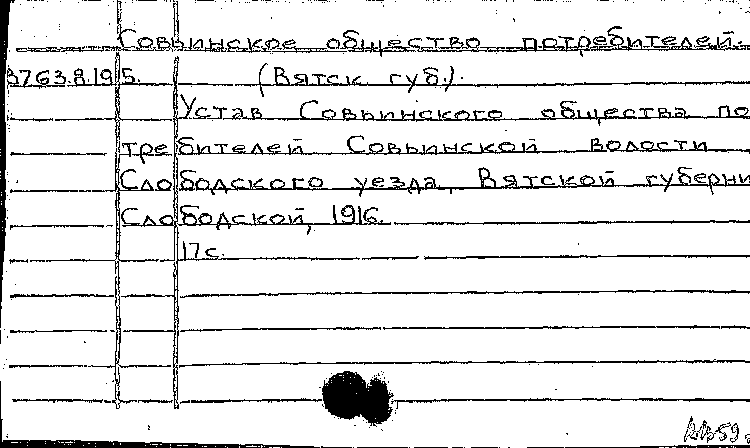 Совьинское общество потребителей.
3763.8.195. (Вятск губ.).
Устав Совьинского общества по
требителей Совьинской волости
Слободского уезда, Вятской губерни
Слободской, 1916.
17с.
59.